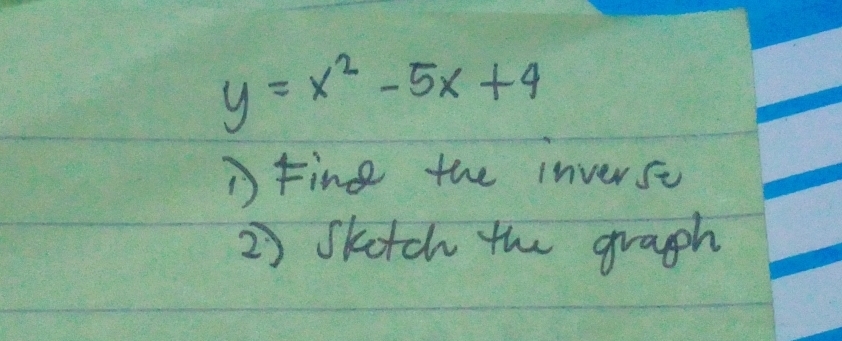 y = x² - 5x + 4
1) Find the inverse
2) Sketch the graph